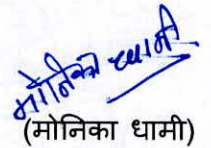 मोनिका धामी
(मोनिका धामी)